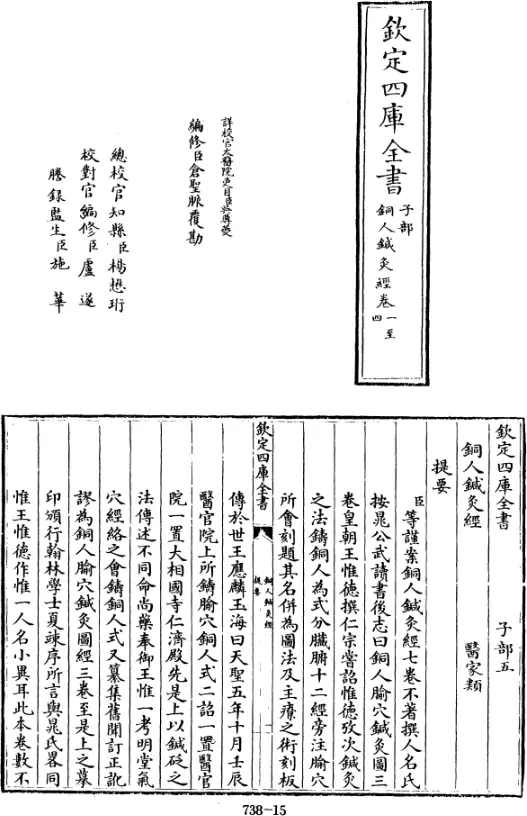 欽定四庫全書
子部
銅人鍼灸經卷一至
四
詳校官太醫院吏目臣
編修臣倉聖脈覆勘
總校官知縣臣楊懋珩
校對官編修臣盧遂
謄錄監生臣施華
欽定四庫全書
子部五
銅人鍼灸經
醫家類
提要
臣等謹案銅人鍼灸經七卷不著撰人名氏
按晁公武讀書後志曰銅人腧穴鍼灸圖三
卷皇朝王惟德撰仁宗嘗詔惟德攷次鍼灸
之法鑄銅人為式分臟腑十二經旁注腧穴
所會刻題其名併為圖法及主療之術刻板
欽定四庫全書
銅人鍼灸經
提要
一
傳於世王應麟玉海曰天聖五年十月壬辰
醫官院上所鑄腧穴銅人式二詔一置醫官
院一置大相國寺仁濟殿先是上以鍼砭之
法傳述不同命尚藥奉御王惟一考明堂氣
穴經絡之會鑄銅人式又纂集舊聞訂正訛
謬為銅人腧穴鍼灸圖經三卷至是上之摹
印頒行翰林學士夏竦序所言與晁氏畧同
惟王惟德作惟一人名小異耳此本卷數不
738-15